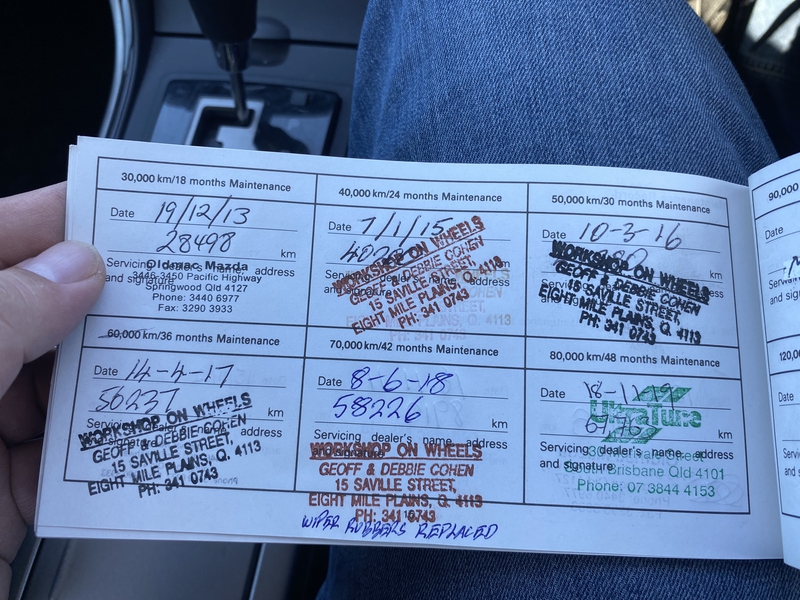 30,000 km/18 months Maintenance
Date 19/12/13
28498 km
Servicing dealer's name, address
and signature
Oldmac Mazda
3446-3450 Pacific Highway
Springwood Qld 4127
Phone: 3440 6977
Fax: 3290 3933
40,000 km/24 months Maintenance
Date 7/1/15
km
Servicing dealer's name, address
and signature
WORKSHOP ON WHEELS
GEOFF & DEBBIE COHEN
15 SAVILLE STREET,
EIGHT MILE PLAINS, Q. 4113
PH: 341 0743
50,000 km/30 months Maintenance
Date 10-3-16
km
WORKSHOP ON WHEELS
GEOFF & DEBBIE COHEN
15 SAVILLE STREET,
EIGHT MILE PLAINS, Q. 4113
PH: 341 0743
60,000 km/36 months Maintenance
Date 14-4-17
56237 km
Servicing dealer's name, address
and signature
WORKSHOP ON WHEELS
GEOFF & DEBBIE COHEN
15 SAVILLE STREET,
EIGHT MILE PLAINS, Q. 4113
PH: 341 0743
70,000 km/42 months Maintenance
Date 8-6-18
58226 km
Servicing dealer's name, address
and signature
WORKSHOP ON WHEELS
GEOFF & DEBBIE COHEN
15 SAVILLE STREET,
EIGHT MILE PLAINS, Q. 4113
PH: 341 0743
WIPER RUBBERS REPLACED
80,000 km/48 months Maintenance
Date 18-11-19
km
UltraTune
Servicing dealer's name, address
and signature
Street
South Brisbane Qld 4101
Phone: 07 3844 4153
90,000
Date
120,0
Date